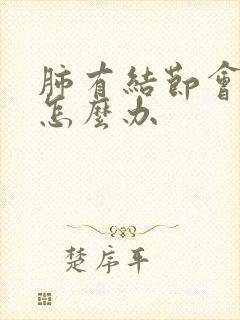 肺有結節會
怎麼办
楚序平